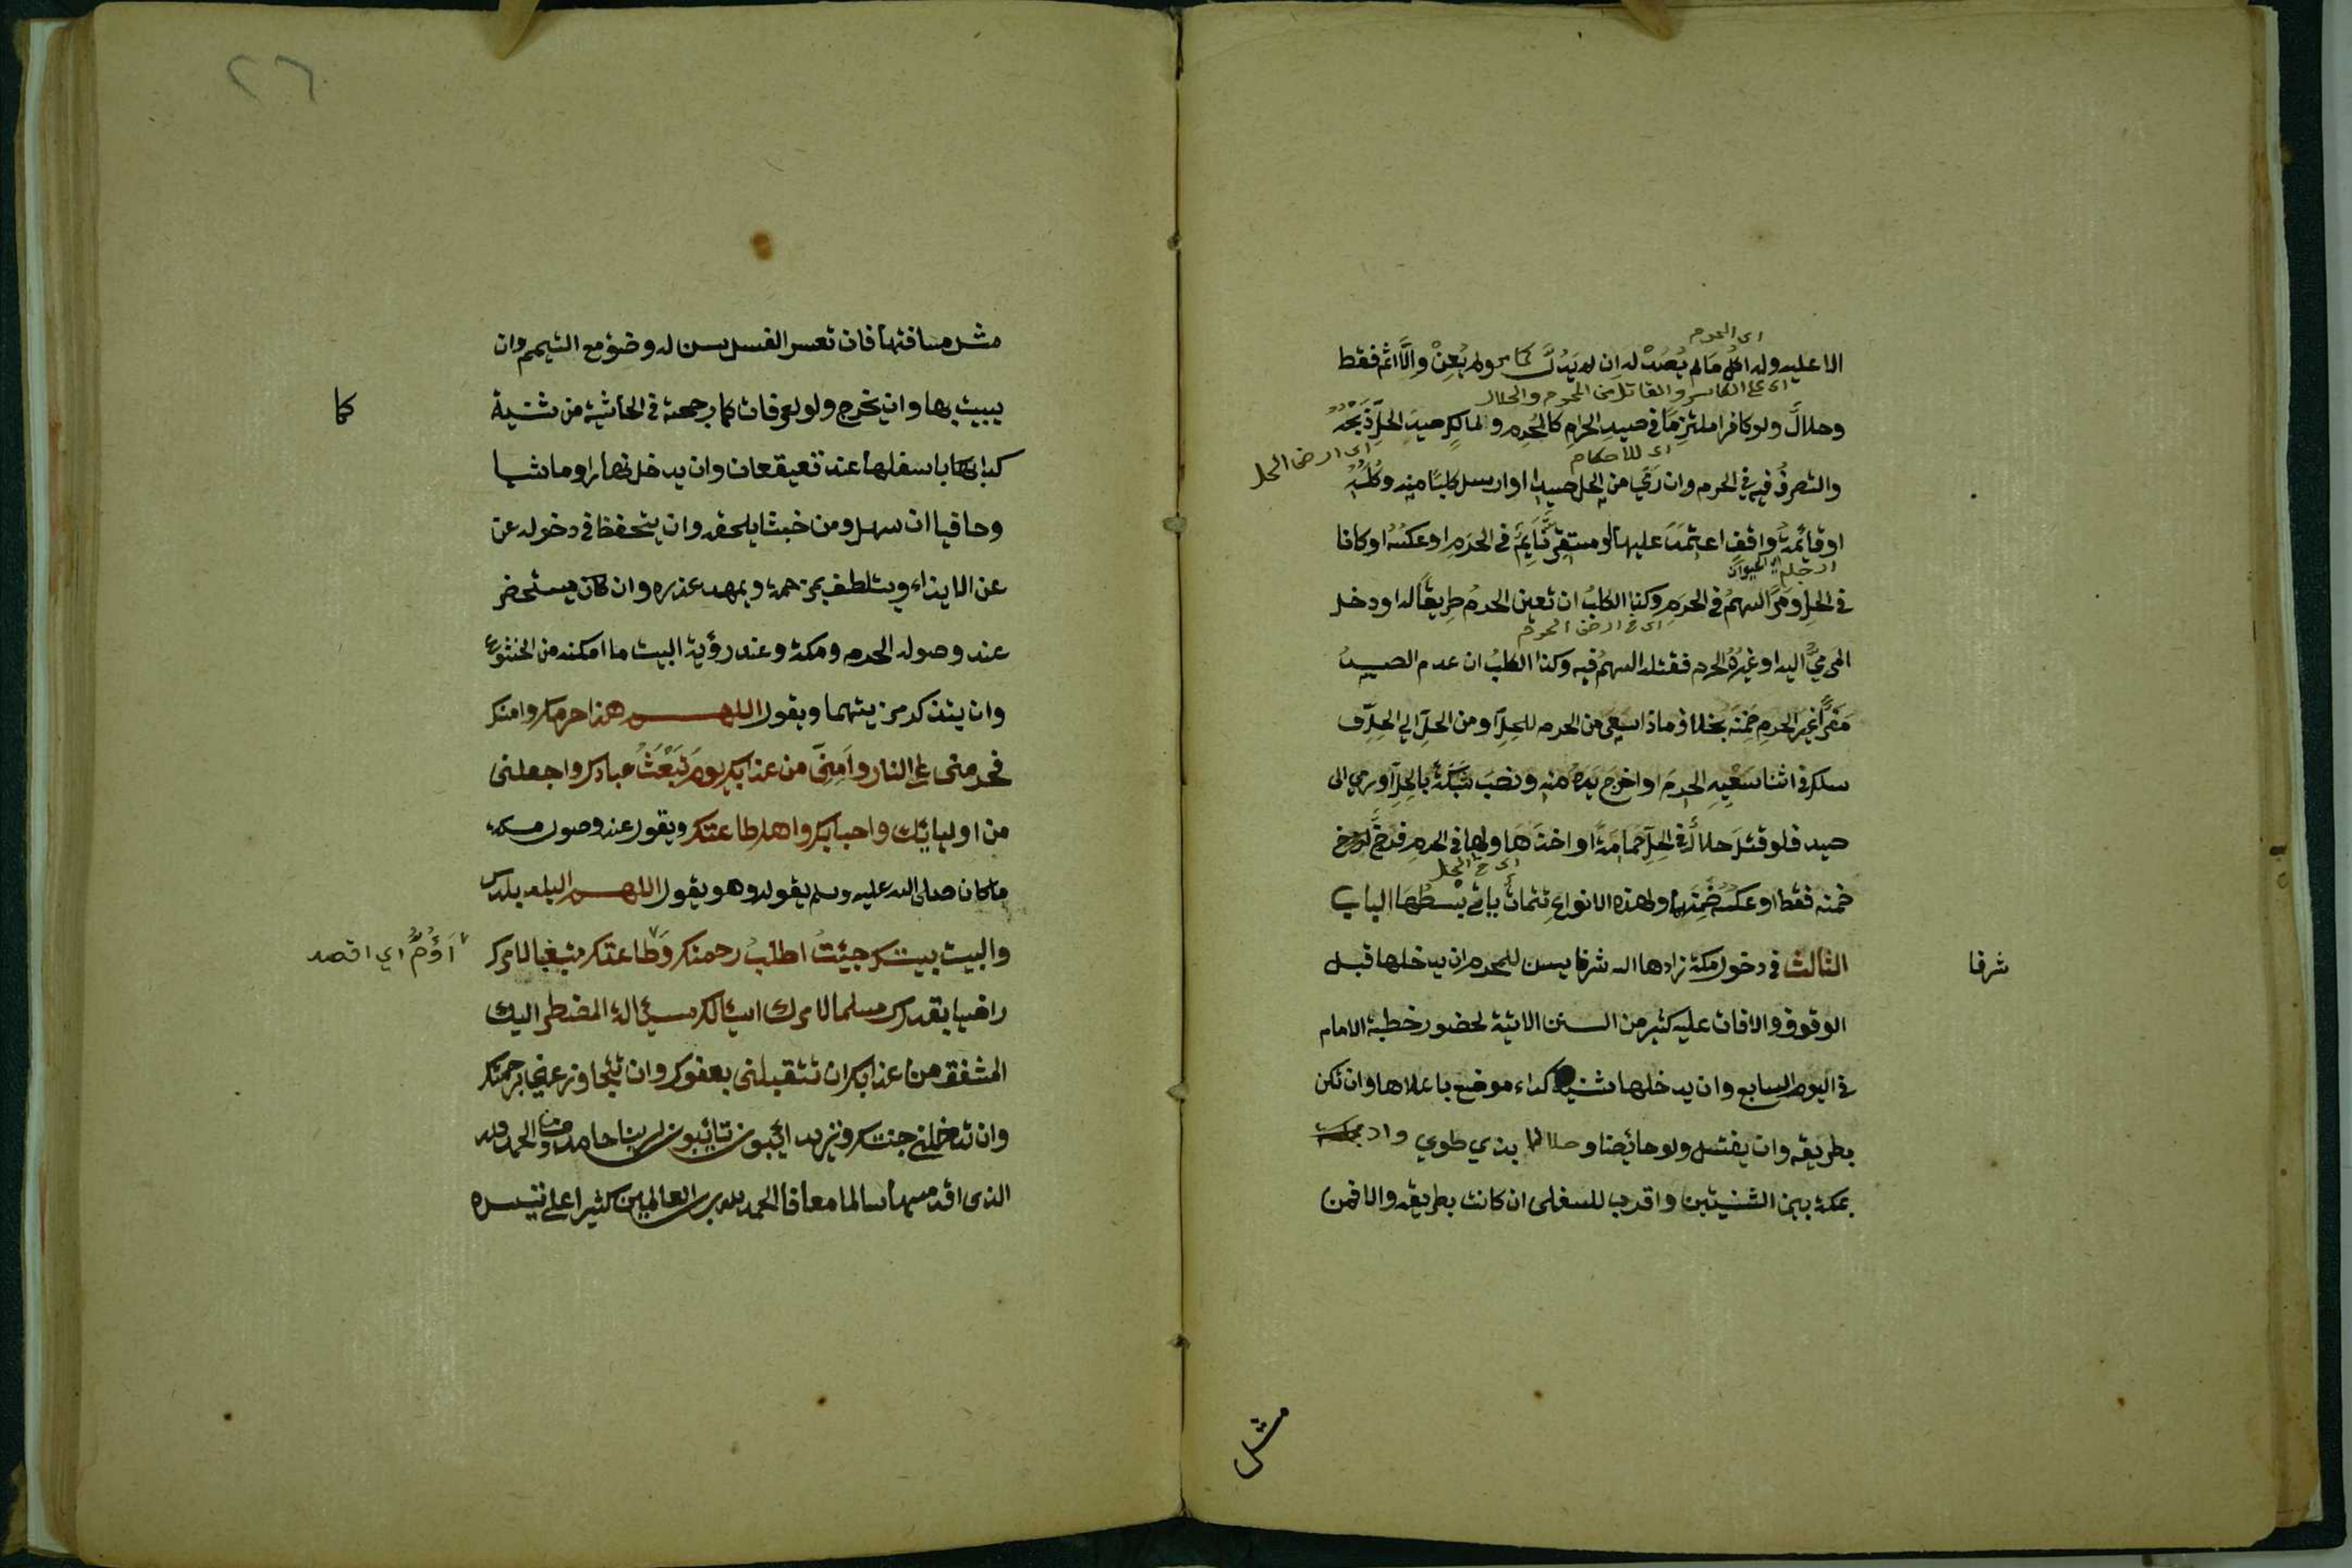 اي المحرم
الا عليه وله اكل مالم يُصَد له ان لم يَدُلَّ ولم يُعِنْ وإلَّا اثم فقط
اي على الكاسر والقاتل من المحرم والحلال
وحلالٌ ولو كافرا ملتزِمًا في صيدِ الحرامِ كالمُحرِم ولمالكِ صيدِ الحلِّ ذَبْحُهُ
اي للاحكام
اي ارض الحل
والتصرفُ فيه في الحرم وان رَمَي من الحل صيدا او ارسل كلبًا منه وكُلُّهُ
او قائمةُ واقفٍ اعتمَدَ عليها او مستقِرُّ نَايِمٍ في الحرَمِ او عكسُه او كانا
في الحلِّ ومَرَّ السهمُ في الحرَمِ وكذا الكلبُ ان تعين الحرمُ طريقًا له او دخل
اي في ارض الحرم
المرميُّ اليه او غيرُهُ الحرم فقتله السهمُ فيه وكذا الكلبُ ان عدم الصيدُ
مَفَرًّا غيرَ الحرمِ ضَمِنَه بخلاف ماذا سَعَى من الحرم للحِلِّ او من الحلِّ الي الحلِّ
سلك في اثنا سَعْيِهِ الحرمَ او اخرج يدَه منه ونصبَ شبَكَةً بالحِلِّ او رمي الى
صيد فلو قتلَ حلالٌ في الحِلِّ حمامةً او اخذَهَا ولها في الحرمِ فرخٌ
اي في الحل
ضمنه فقط او عكسُه ضَمِنَهما ولهذه الانواع تتمات يأتي بسْطُهَا الباب
الثالث في دخول مكة زادها الله شرفا يسن للمحرم ان يدخلها قبل
شرفا
الوقوف والا فات عليه كثير من السنن الاتية لحضور خطبة الامام
في اليوم السابع وان يدخلها من ثنية كداء موضع باعلاها وان لم تكن
بطريقه وان يغتسل ولو حائضا وحلالا بذي طوي واد
بمكة بين الثنيتين واقرب للسفلى ان كانت بطريقه والا فمن
مثل
٢٦
مثل مسافتها فان تعسر الغسل يسن له وضؤ مع التيمم وان
يبيت بها وان يخرج ولو لعرفات كما من ثنية
كما
كدا باسفلها عند قعيقعان وان يدخل نهارا وماشيا
وحافيا ان سهل وامن خبثا يلحقه وان يتحفظ في دخوله عن
عن الايذاء ويتلطف بمن زحمه ويمهد عذره وان كان يستحضر
عند وصوله الحرم ومكة وعند رؤية البيت ما امكنه من الخشوع
وان يتذكر مزيتهما ويقول اللهم هذا حرمك وامنك
فحرمني على النار وأمِنّي من عذابك يوم تبعَثُ عبادك واجعلني
من اوليائك واحبابك واهل طاعتك ويقول عند وصول مكه
ما كان صلى الله عليه وسلم يقوله وهو يقول اللهم البلد بلدك
والبيت بيتك جيئتُ اطلبُ رحمتك وطاعتك متبعا لامرك
أَؤُمُّ اي اقصد
راضيا بقدرك مسلما لامرك اسئالك مسئالة المضطر اليك
المشفق من عذابك ان تتقبلني بعفوك وان تتجاوز عني برحمتك
وان تدخلني جنتك ونزيد آئبون تائبون لربنا حامدون الحمد لله
الذي اقدمنيها سالما معافا الحمد لله رب العالمين كثيرا على تيسره